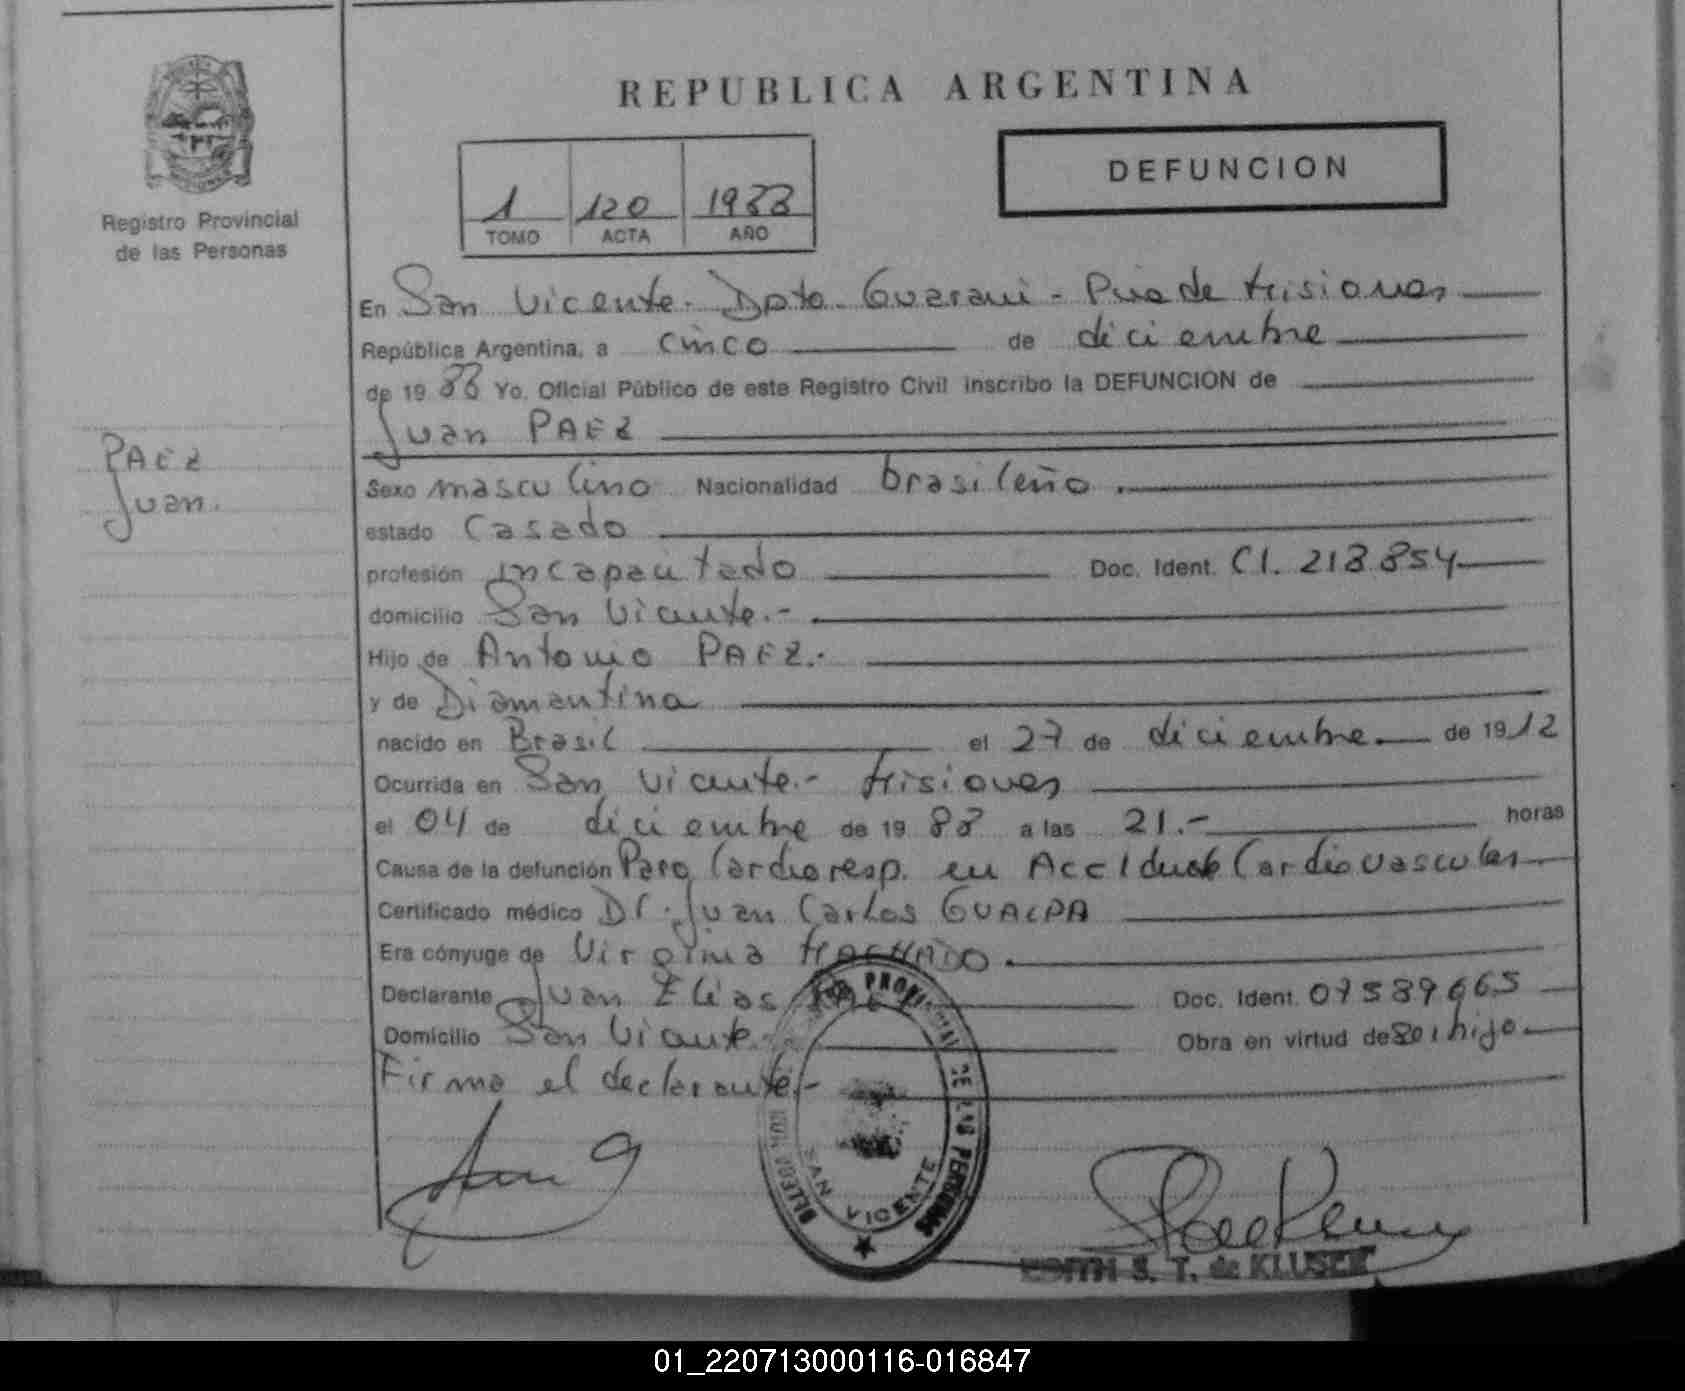 REPUBLICA ARGENTINA
Registro Provincial
de las Personas
1 120 1988
TOMO ACTA AÑO
DEFUNCION
En San Vicente - Dpto Guarani - Pvia de Misiones
República Argentina, a cinco de diciembre
de 1988 Yo, Oficial Público de este Registro Civil inscribo la DEFUNCION de
Juan PAEZ
PAEZ
Juan.
Sexo masculino Nacionalidad brasileño.
estado Casado
profesión incapacitado Doc. Ident. CI. 218.854
domicilio San Vicente.-
Hijo de Antonio PAEZ.-
y de Diamantina
nacido en Brasil el 27 de diciembre de 1912
Ocurrida en San Vicente.- Misiones
el 04 de diciembre de 1988 a las 21.- horas
Causa de la defunción Paro Cardioresp. en Accidente Cardiovascular
Certificado médico Dr. Juan Carlos GUALPA
Era cónyuge de Virginia MACHADO.
Declarante Juan Elias PAEZ Doc. Ident. 07589665
Domicilio San Vicente.- Obra en virtud de ser hijo.
Firma el declarante.-
PROVINCIAL DE LAS PERSONAS
SAN VICENTE
EDITH S. T. de KLUSEK
01_220713000116-016847